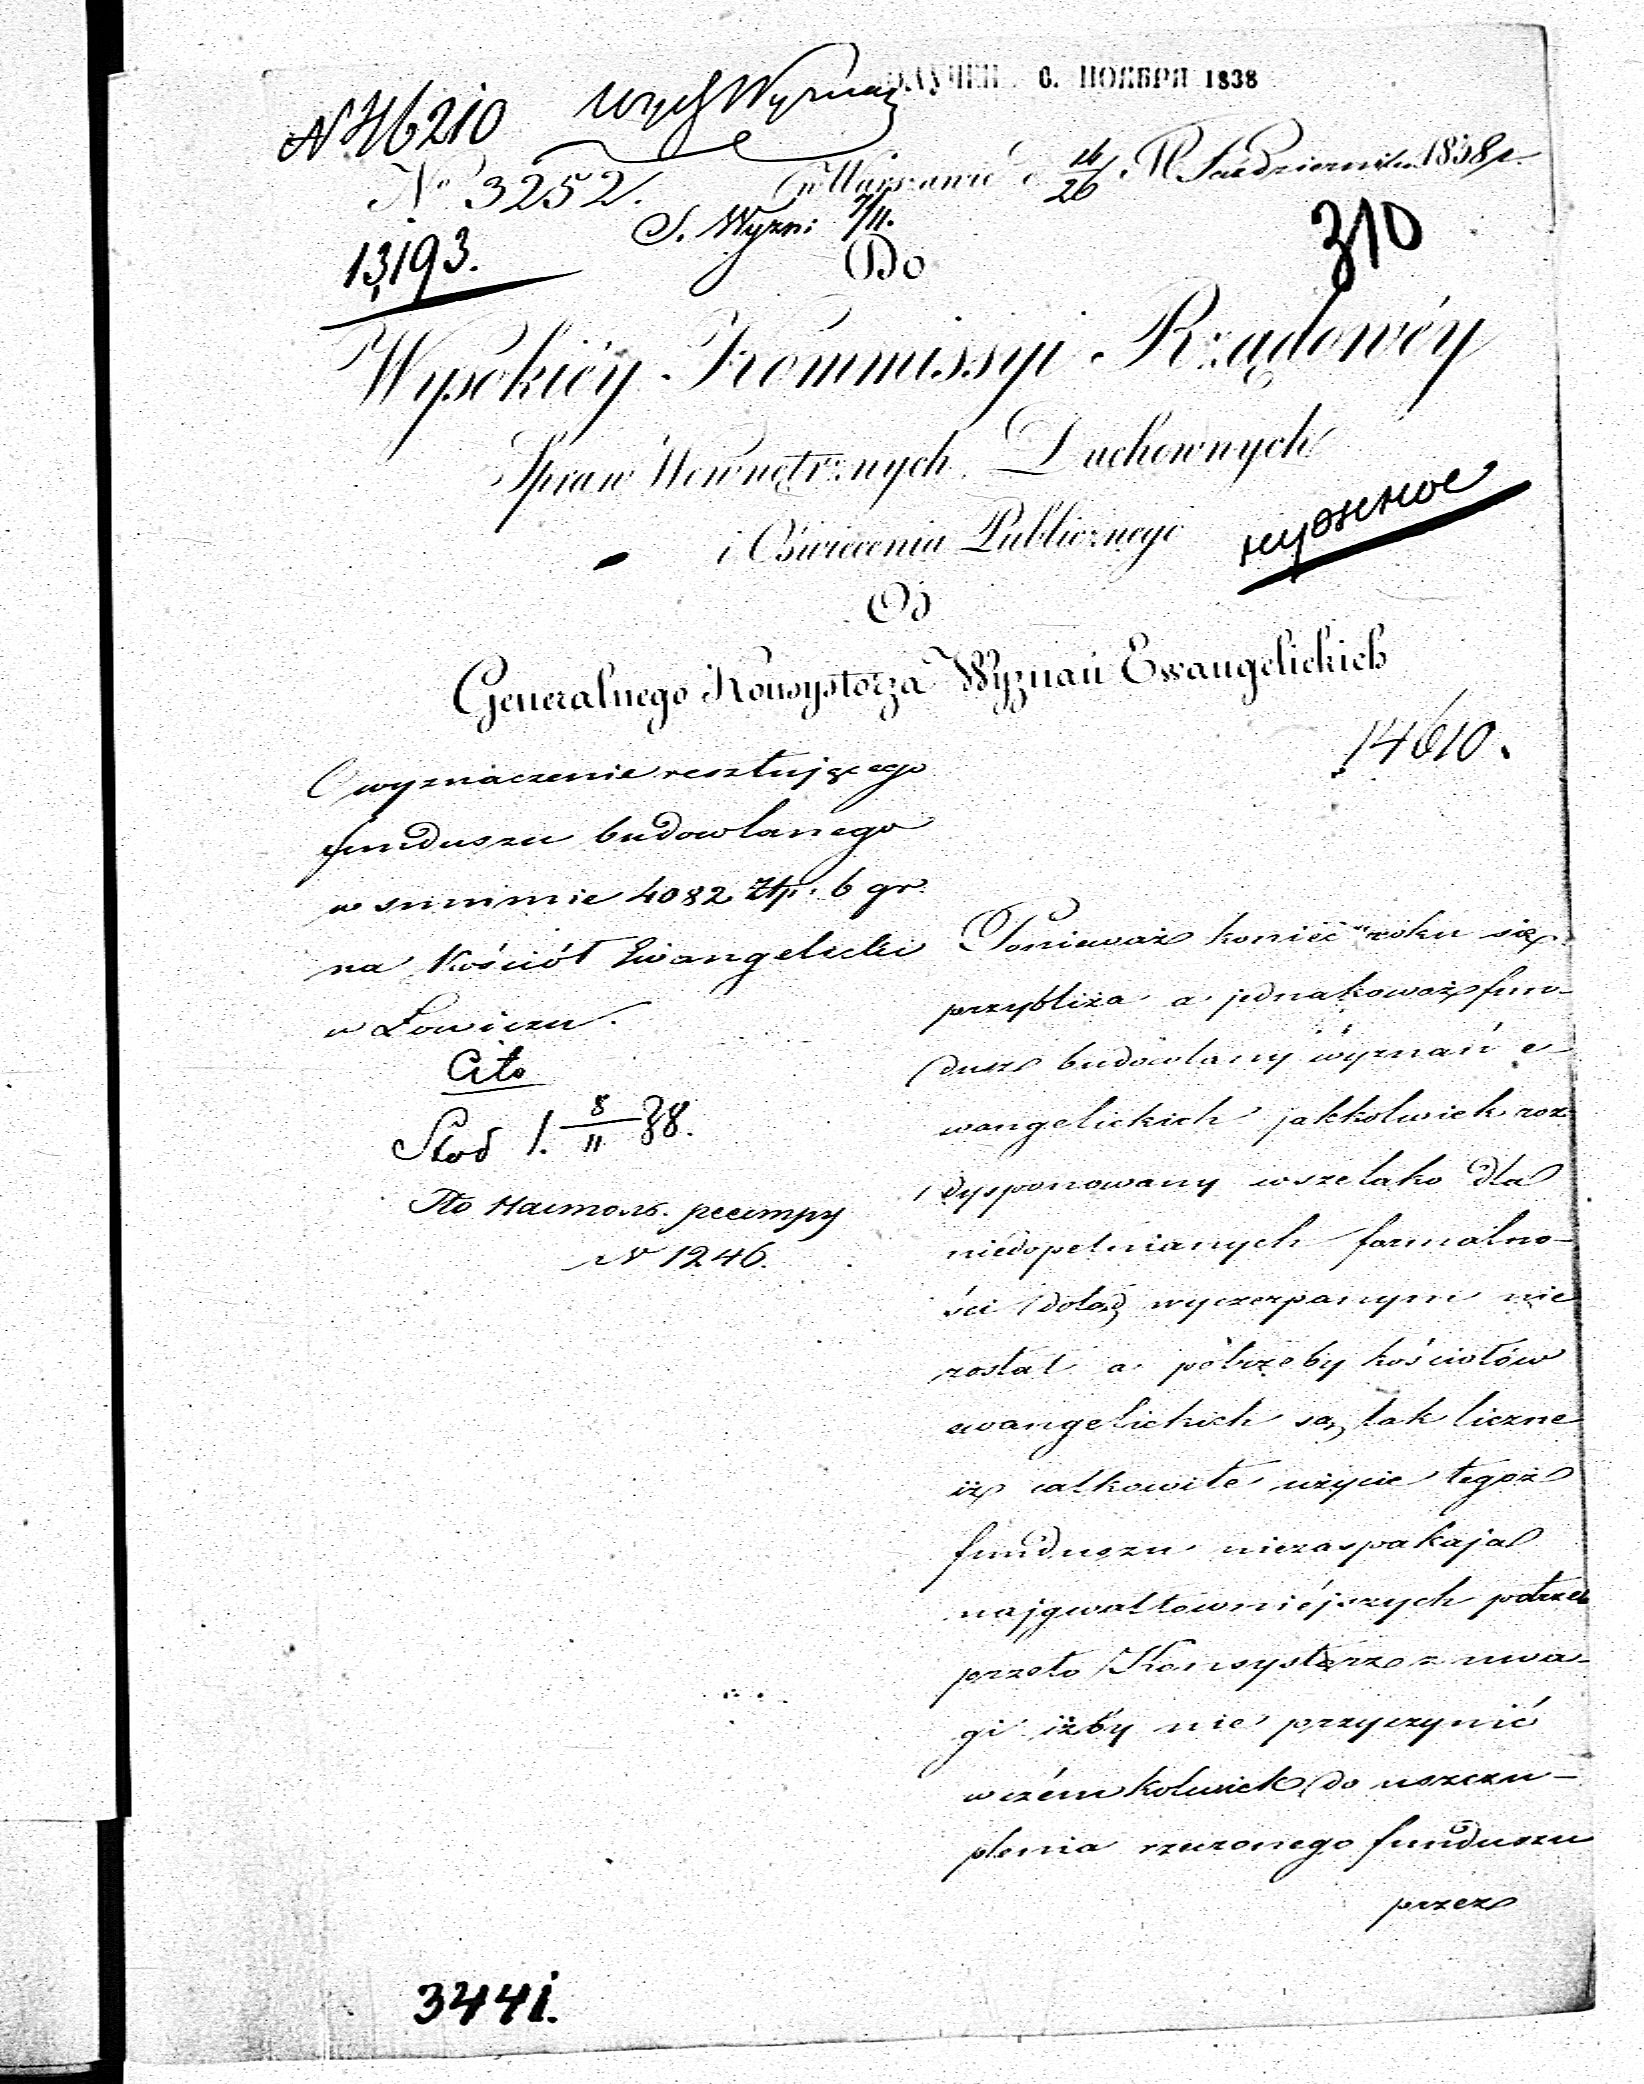 ПОЛУЧЕН 6. НОЯБРЯ 1838
N 46210
Wyz
Nº 3252.
w Warszawie d 14/26 M. Października 1838 r.
S. Wyzn: 7/11.
310
13,193.
Do
Wysokiéy Kommissyi Rządowéy
Spraw Wewnętrznych Duchownych
i Oświecenia Publicznego
нужное
Od
Generalnego Konsystorza Wyznań Ewangelickich
14610.
O wyznaczenie resztującego
funduszu budowlanego
w summie 4082 Złp. 6 gr.
na Kościół Ewangelicki
w Łowiczu.
Cito
8/11 38.
По Настоль. реестру
N 1246.
Ponieważ koniec roku się
przybliża a jednakoważ fun-
dusz budowlany wyznań e-
wangelickich jakkolwiek roz-
dysponowany wszelako dla
niedopełnianych formalno-
ści dotąd wyczerpanym nie
został a potrzeby kościołów
ewangelickich są tak liczne
iż całkowite użycie tegoż
funduszu niezaspakaja
najgwałtowniéjszych potrzeb
przeto Konsystorz z uwa-
gi iżby nie przyczynić
w czémkolwiek do uszczu-
plenia rzeczonego funduszu
przez
3441.